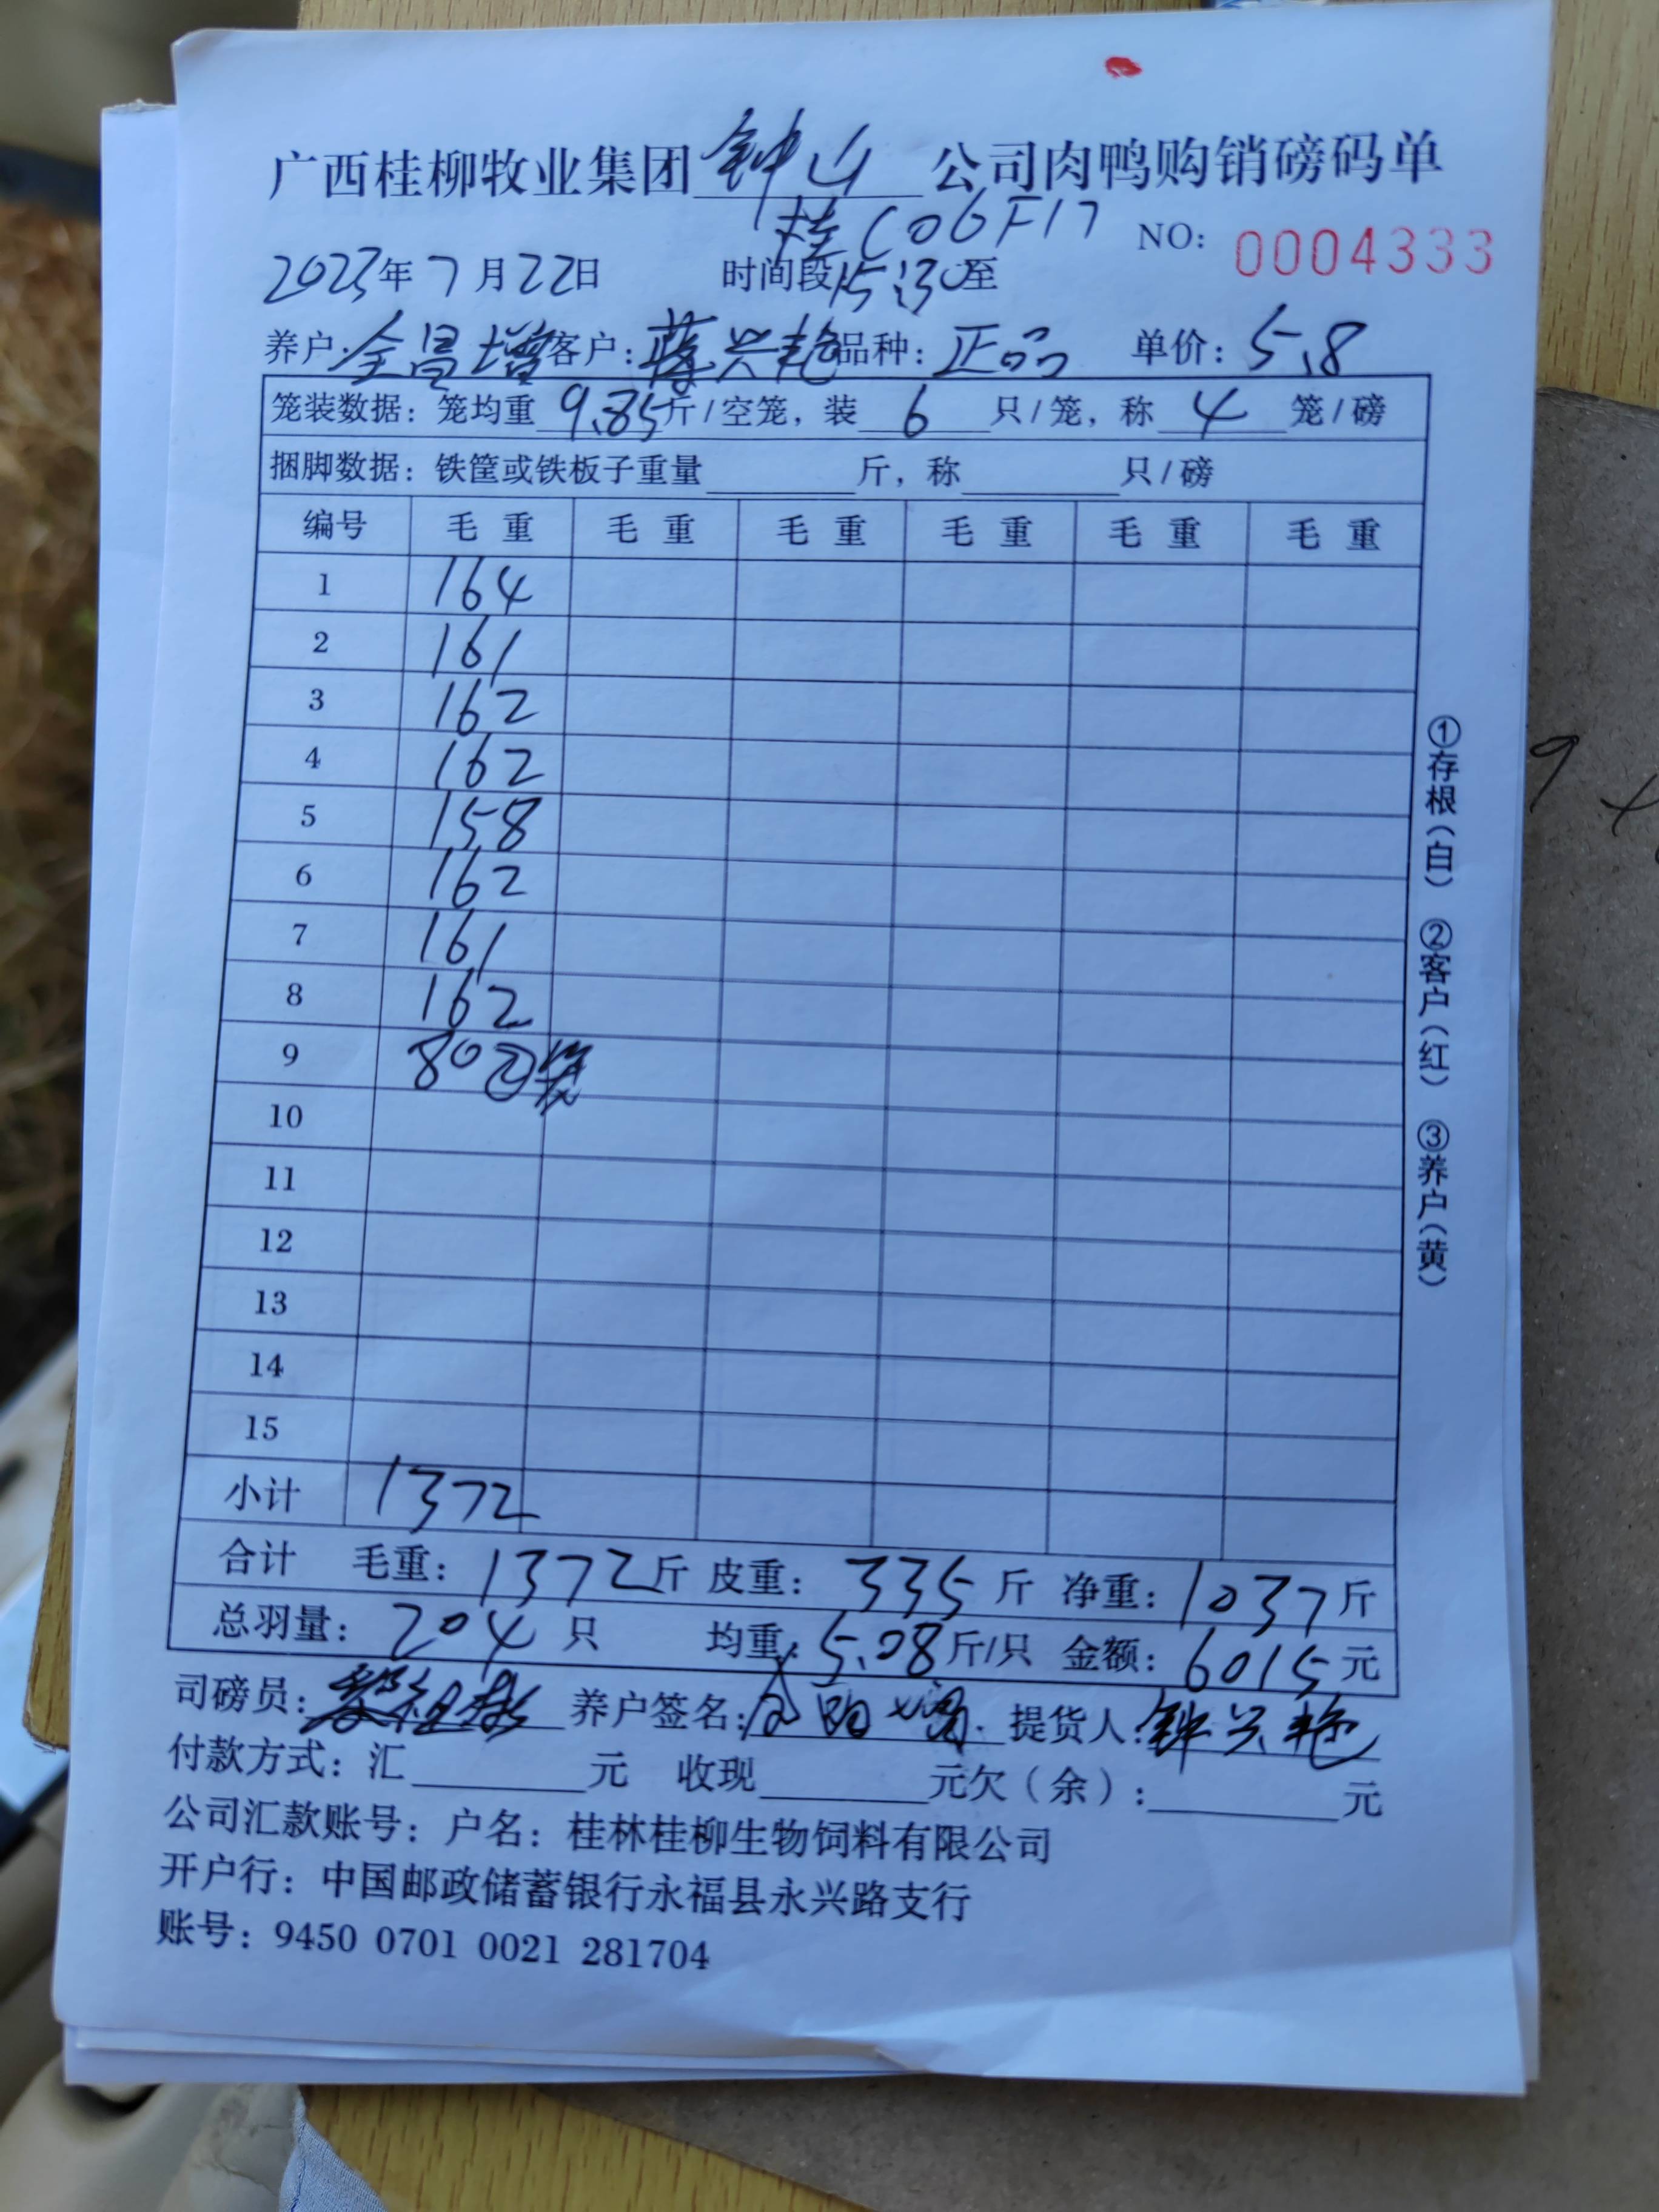 广西桂柳牧业集团钟山公司肉鸭购销磅码单
桂C06F17
NO: 0004333
2023年7月22日 时间段15:30至
养户:全昌增 客户:蒋兴艳 品种:正品 单价:5.8
笼装数据:笼均重9.85斤/空笼,装6只/笼,称4笼/磅
捆脚数据:铁筐或铁板子重量 斤,称 只/磅
编号 毛重 毛重 毛重 毛重 毛重 毛重
1 164
2 161
3 162
4 162
5 158
6 162
7 161
8 162
9 80②笼
10
11
12
13
14
15
小计 1372
合计 毛重:1372斤 皮重:335斤 净重:1037斤
总羽量:204只 均重:5.08斤/只 金额:6015元
司磅员: 养户签名: 提货人:钟兴艳
付款方式:汇 元 收现 元欠(余): 元
公司汇款账号:户名:桂林桂柳生物饲料有限公司
开户行:中国邮政储蓄银行永福县永兴路支行
账号:9450 0701 0021 281704
①存根(白) ②客户(红) ③养户(黄)